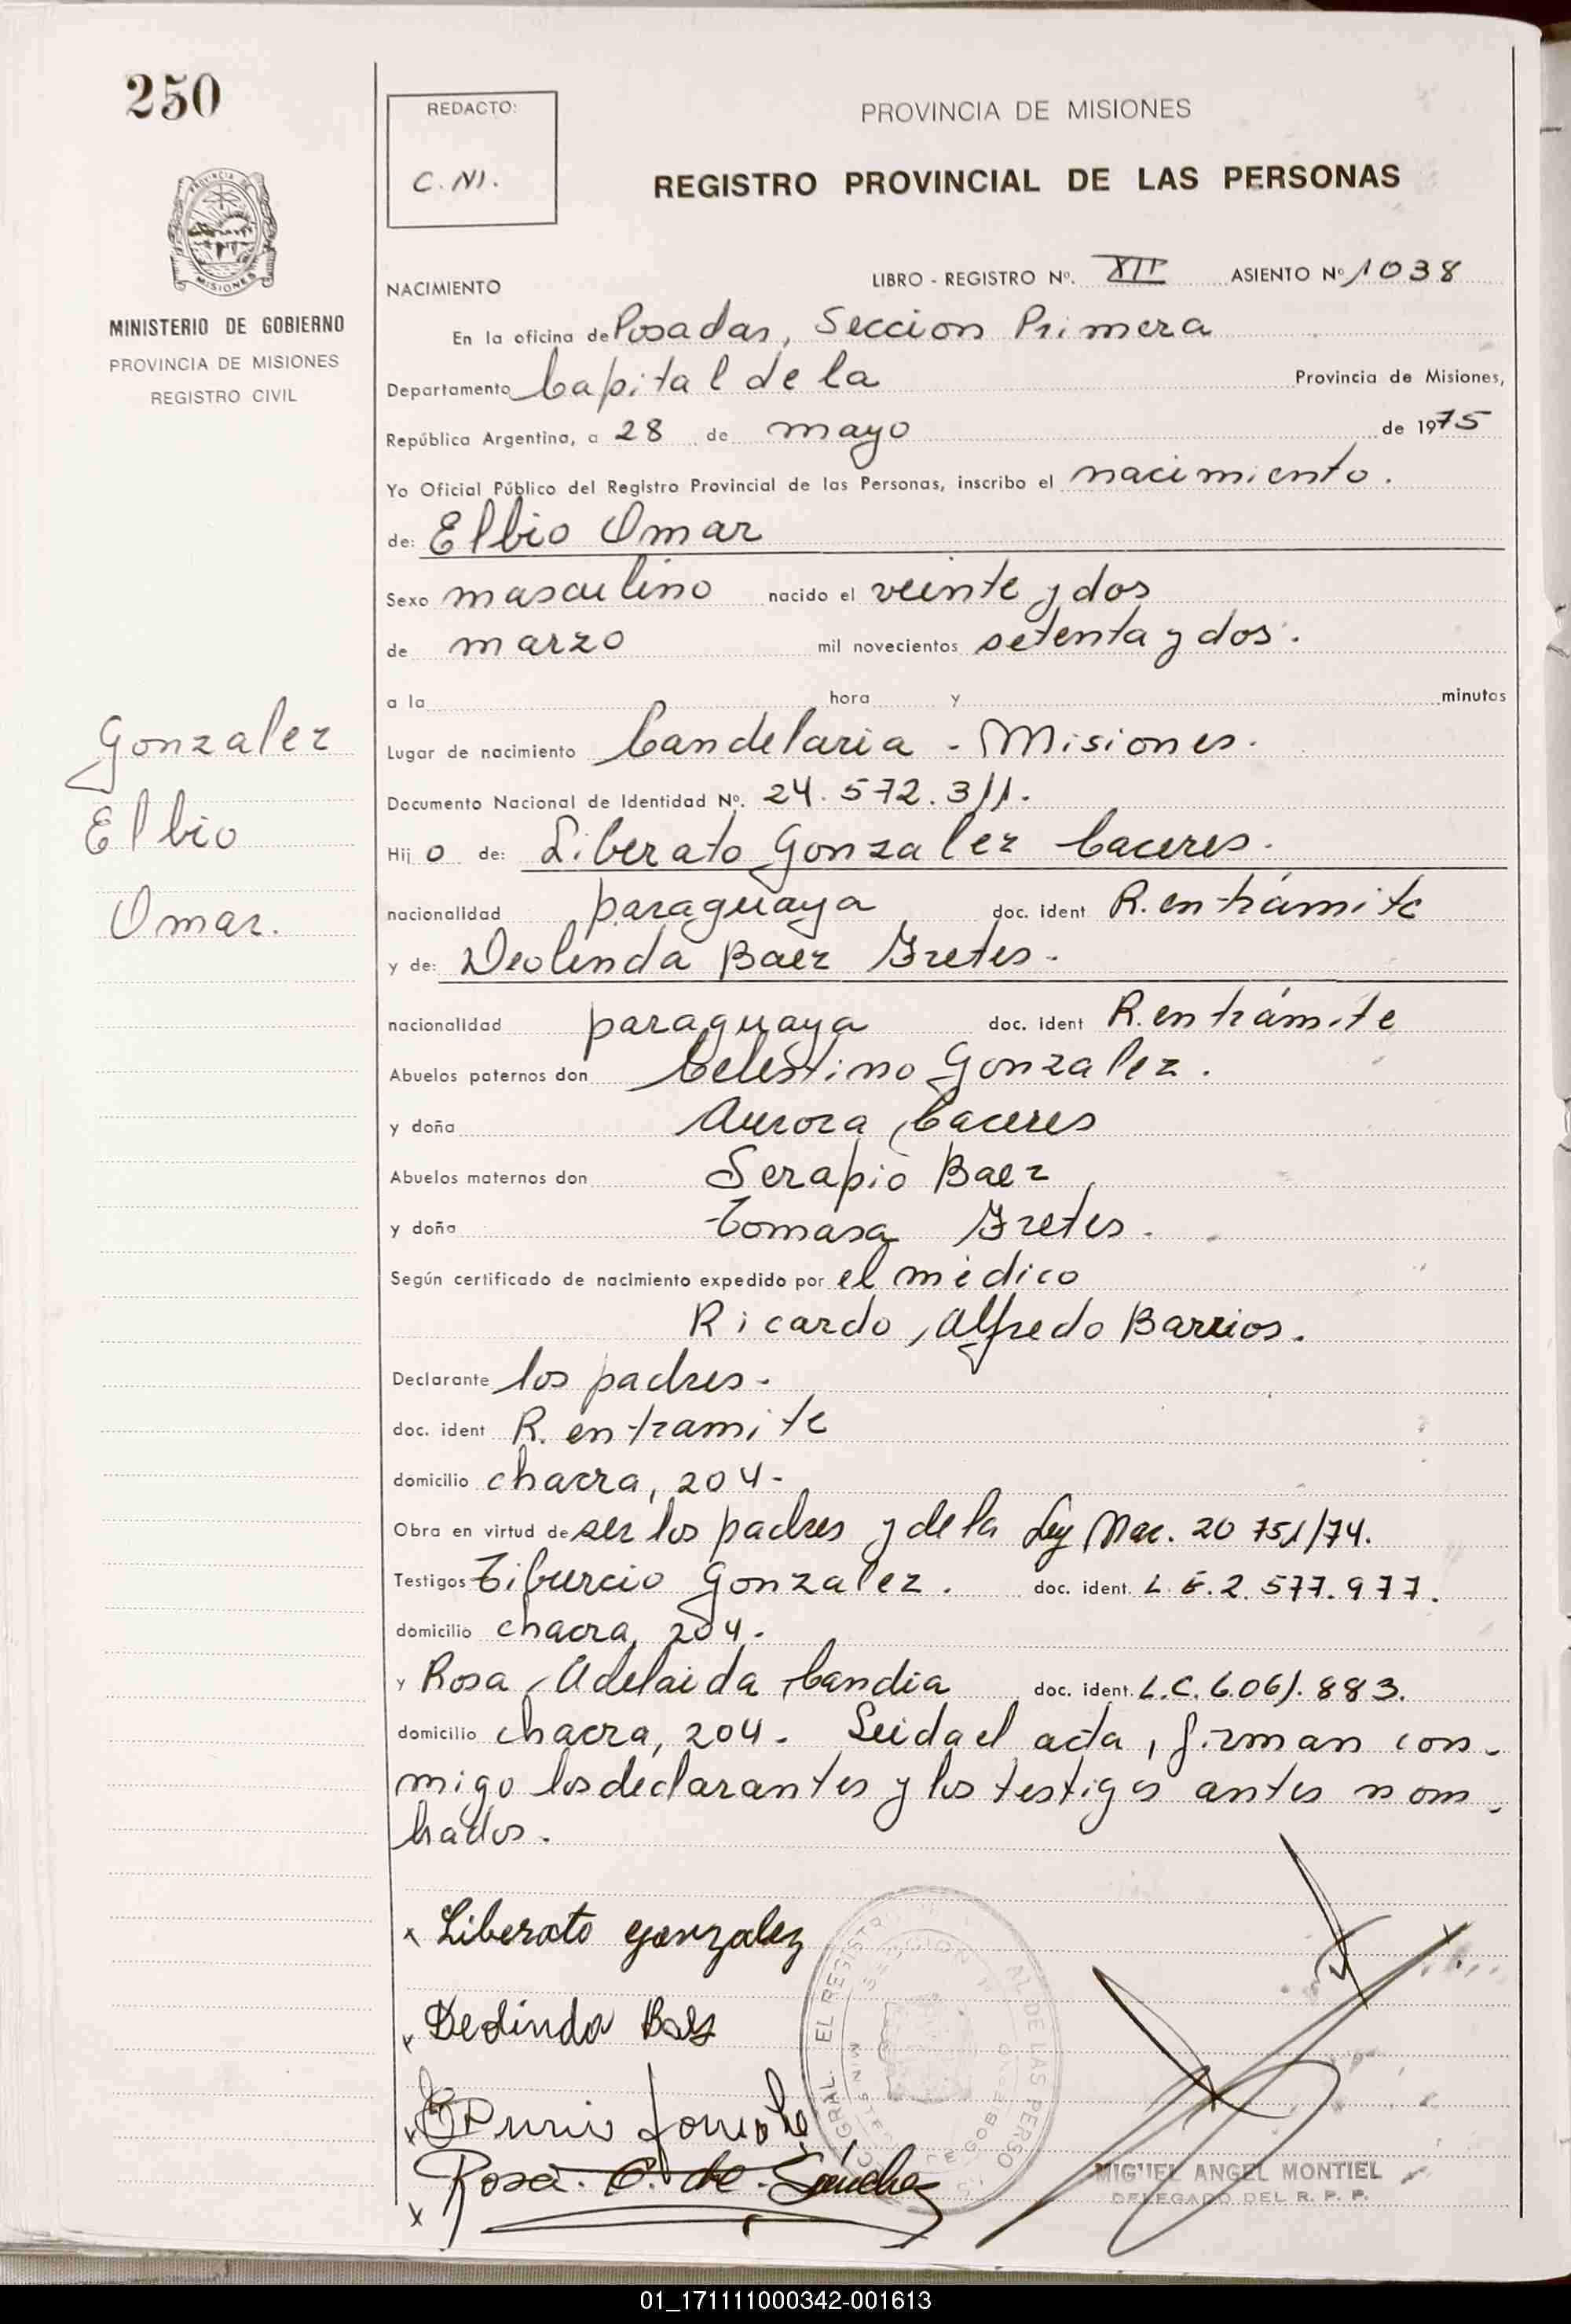 250
REDACTO:
C.M.
PROVINCIA DE MISIONES
REGISTRO PROVINCIAL DE LAS PERSONAS
MISIONES
MINISTERIO DE GOBIERNO
PROVINCIA DE MISIONES
REGISTRO CIVIL
NACIMIENTO LIBRO - REGISTRO Nº. XII ASIENTO Nº 1038
En la oficina de Posadas, Seccion Primera
Departamento Capital de la Provincia de Misiones,
República Argentina, a 28 de mayo de 1975
Yo Oficial Público del Registro Provincial de las Personas, inscribo el nacimiento.
de: Elbio Omar
Sexo masculino nacido el veinte y dos
de marzo mil novecientos setenta y dos.
a la hora y minutos
Gonzalez
Elbio
Omar.
Lugar de nacimiento Candelaria - Misiones.
Documento Nacional de Identidad Nº. 24.572.311.
Hij o de: Liberato Gonzalez Caceres.
nacionalidad paraguaya doc. ident R. en trámite
y de: Deolinda Baez Fretes.
nacionalidad paraguaya doc. ident R. en trámite
Abuelos paternos don Celestino Gonzalez.
y doña Aurora Caceres
Abuelos maternos don Serapio Baez
y doña Tomasa Fretes.
Según certificado de nacimiento expedido por el médico
Ricardo Alfredo Barrios.
Declarante los padres.
doc. ident R. en tramite
domicilio chacra, 204.
Obra en virtud de ser los padres y de la Ley Nac. 20751/74.
Testigos Tiburcio Gonzalez. doc. ident. L.E. 2.577.977.
domicilio chacra, 204.
y Rosa Adelaida Candia doc. ident. L.C. 6061.883.
domicilio chacra, 204. Leida el acta, firman con-
migo los declarantes y los testigos antes nom-
brados.
x Liberato gonzalez
x Deolinda Baez
x
x Rosa. C. de Sánchez
MIGUEL ANGEL MONTIEL
DELEGADO DEL R. P. P.
01_171111000342-001613